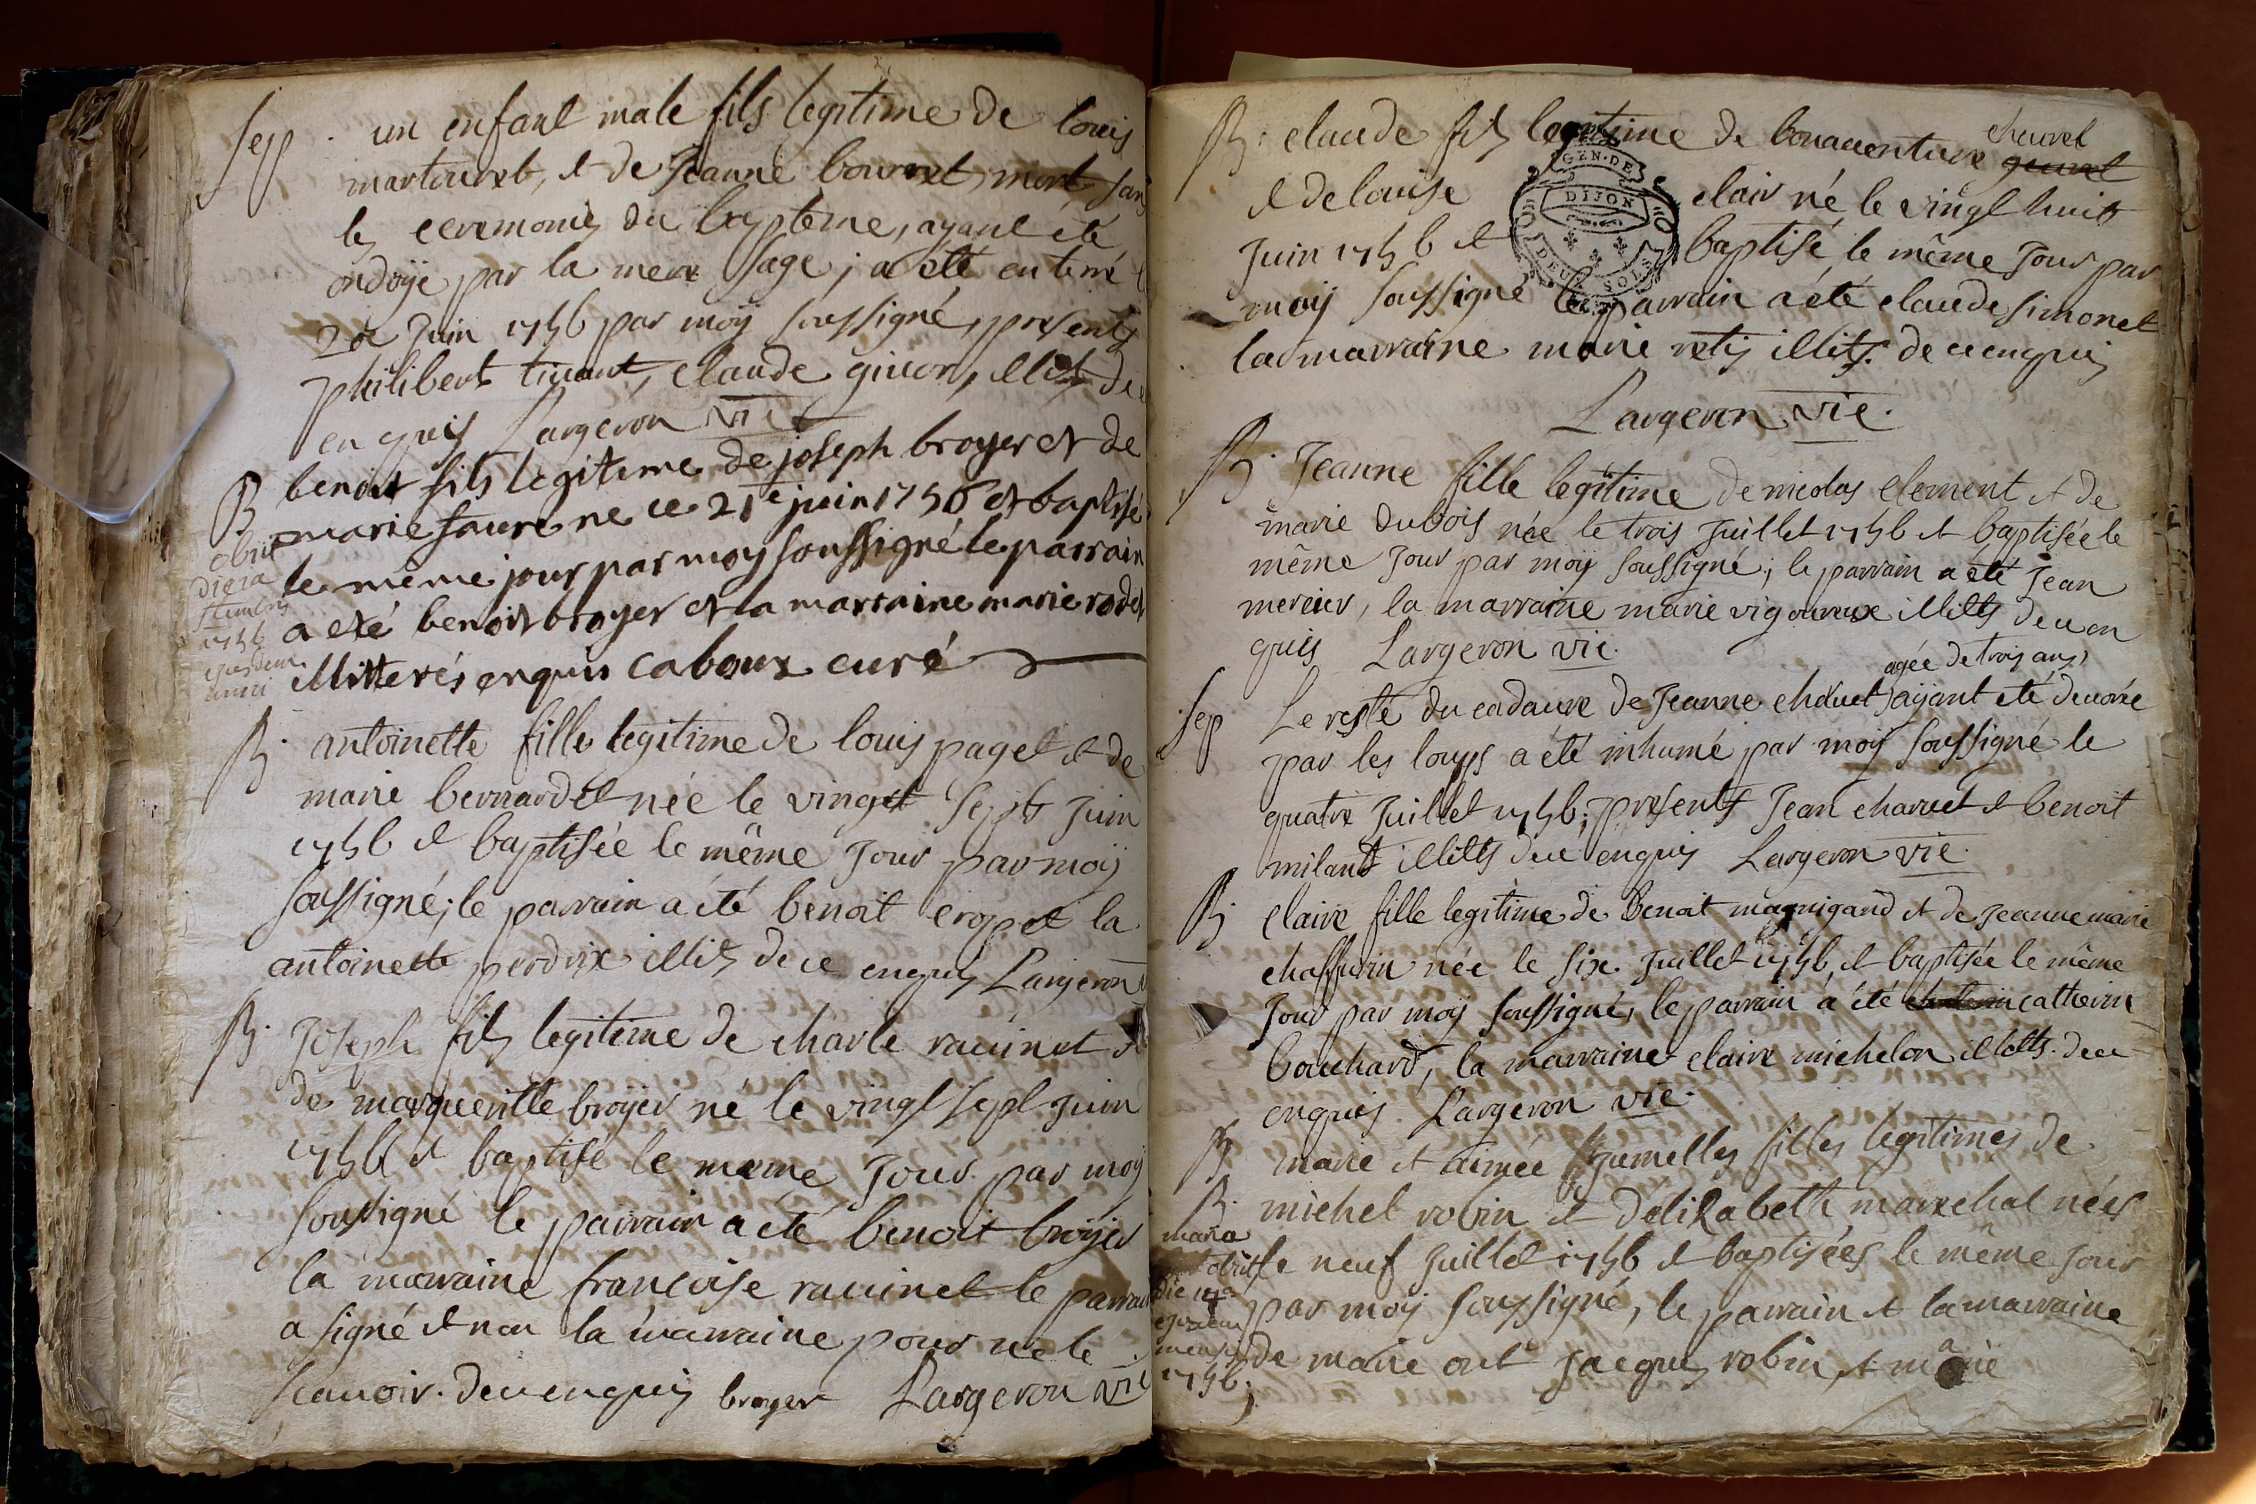 Sep. un enfant male fils legitime de louis
martouret, et de Jeanne bourret, mort, sans
les ceremonies du baptême, ayant été
ondoÿé par la mere sage, a été enterré
20e Juin 1756 par moÿ soussigné, presents
philibert tiuant, claude giuon, illits de
enquis Largeron vic
B benoit fils legitime de joseph broyer et de
marie faure né le 21e juin 1756 et baptisé
le même jour par moy soussigné le parrain
a eté benoit broyer et la marraine marie rodet
illitterés enquis caboux curé
obiit
die 12a
septembris
1756
ejusdem
anni
B. antoinette fille legitime de louis paget et de
marie bernardet née le vingt sept Juin
1756 et baptisée le même Jour par moÿ
soussigné; le parrain a été benoit crozet la
antoinette perdrix illits de ce enquis Largeron
B. Joseph fils legitime de charle racinet et
de margueritte broÿer né le vingt sept Juin
1756 et baptisé le meme Jour par moÿ
soussigné le parrain a eté benoit broÿer
la marraine francoise racinet le parrain
a signé et non la marraine pour ne le
scauoir. de ce enquis broyer Largeron vic
B. claude fils legitime de bonauenture chauuet
et de louise clair né le vingt huit
GEN. DE
DIJON
DEUX SOLS
Juin 1756 et baptisé le même Jour par
moÿ soussigné le parrain a été claude simonet
la marraine marie retis illits. de ce enquis
Largeron vic.
B. Jeanne fille legitime de nicolas clement et de
marie dubois née le trois Juillet 1756 et baptisée le
même Jour par moÿ soussigné; le parrain a été Jean
mercier, la marraine marie vigoureux illitts de ce en
quis Largeron vic.
agée de trois ans,
Sep Le reste du cadaure de Jeanne chauet aÿant eté deuorée
par les loups a été inhumé par moÿ soussigné le
quatre Juillet 1756; presents Jean charuet et benoit
milant illitts de ce enquis Largeron vic.
B. claire fille legitime de benoit magnigand et de Jeanne marie
chaffurin née le six Juillet 1756, et baptisée le même
Jour par moÿ soussigné, le parrain a été catherin
bouchard, la marraine claire michelon illitts. de ce
enquis. Largeron vic.
B marie et aimée Jumelles filles legitimes de
B. michel robin et delizabeth marechal nées
le neuf Juillet 1756 et baptisées le même Jour
par moÿ soussigné, le parrain et la marraine
de marie ont Jacques robin, et marie
maria
obiit
die 14a
ejusdem
mensis
1756.